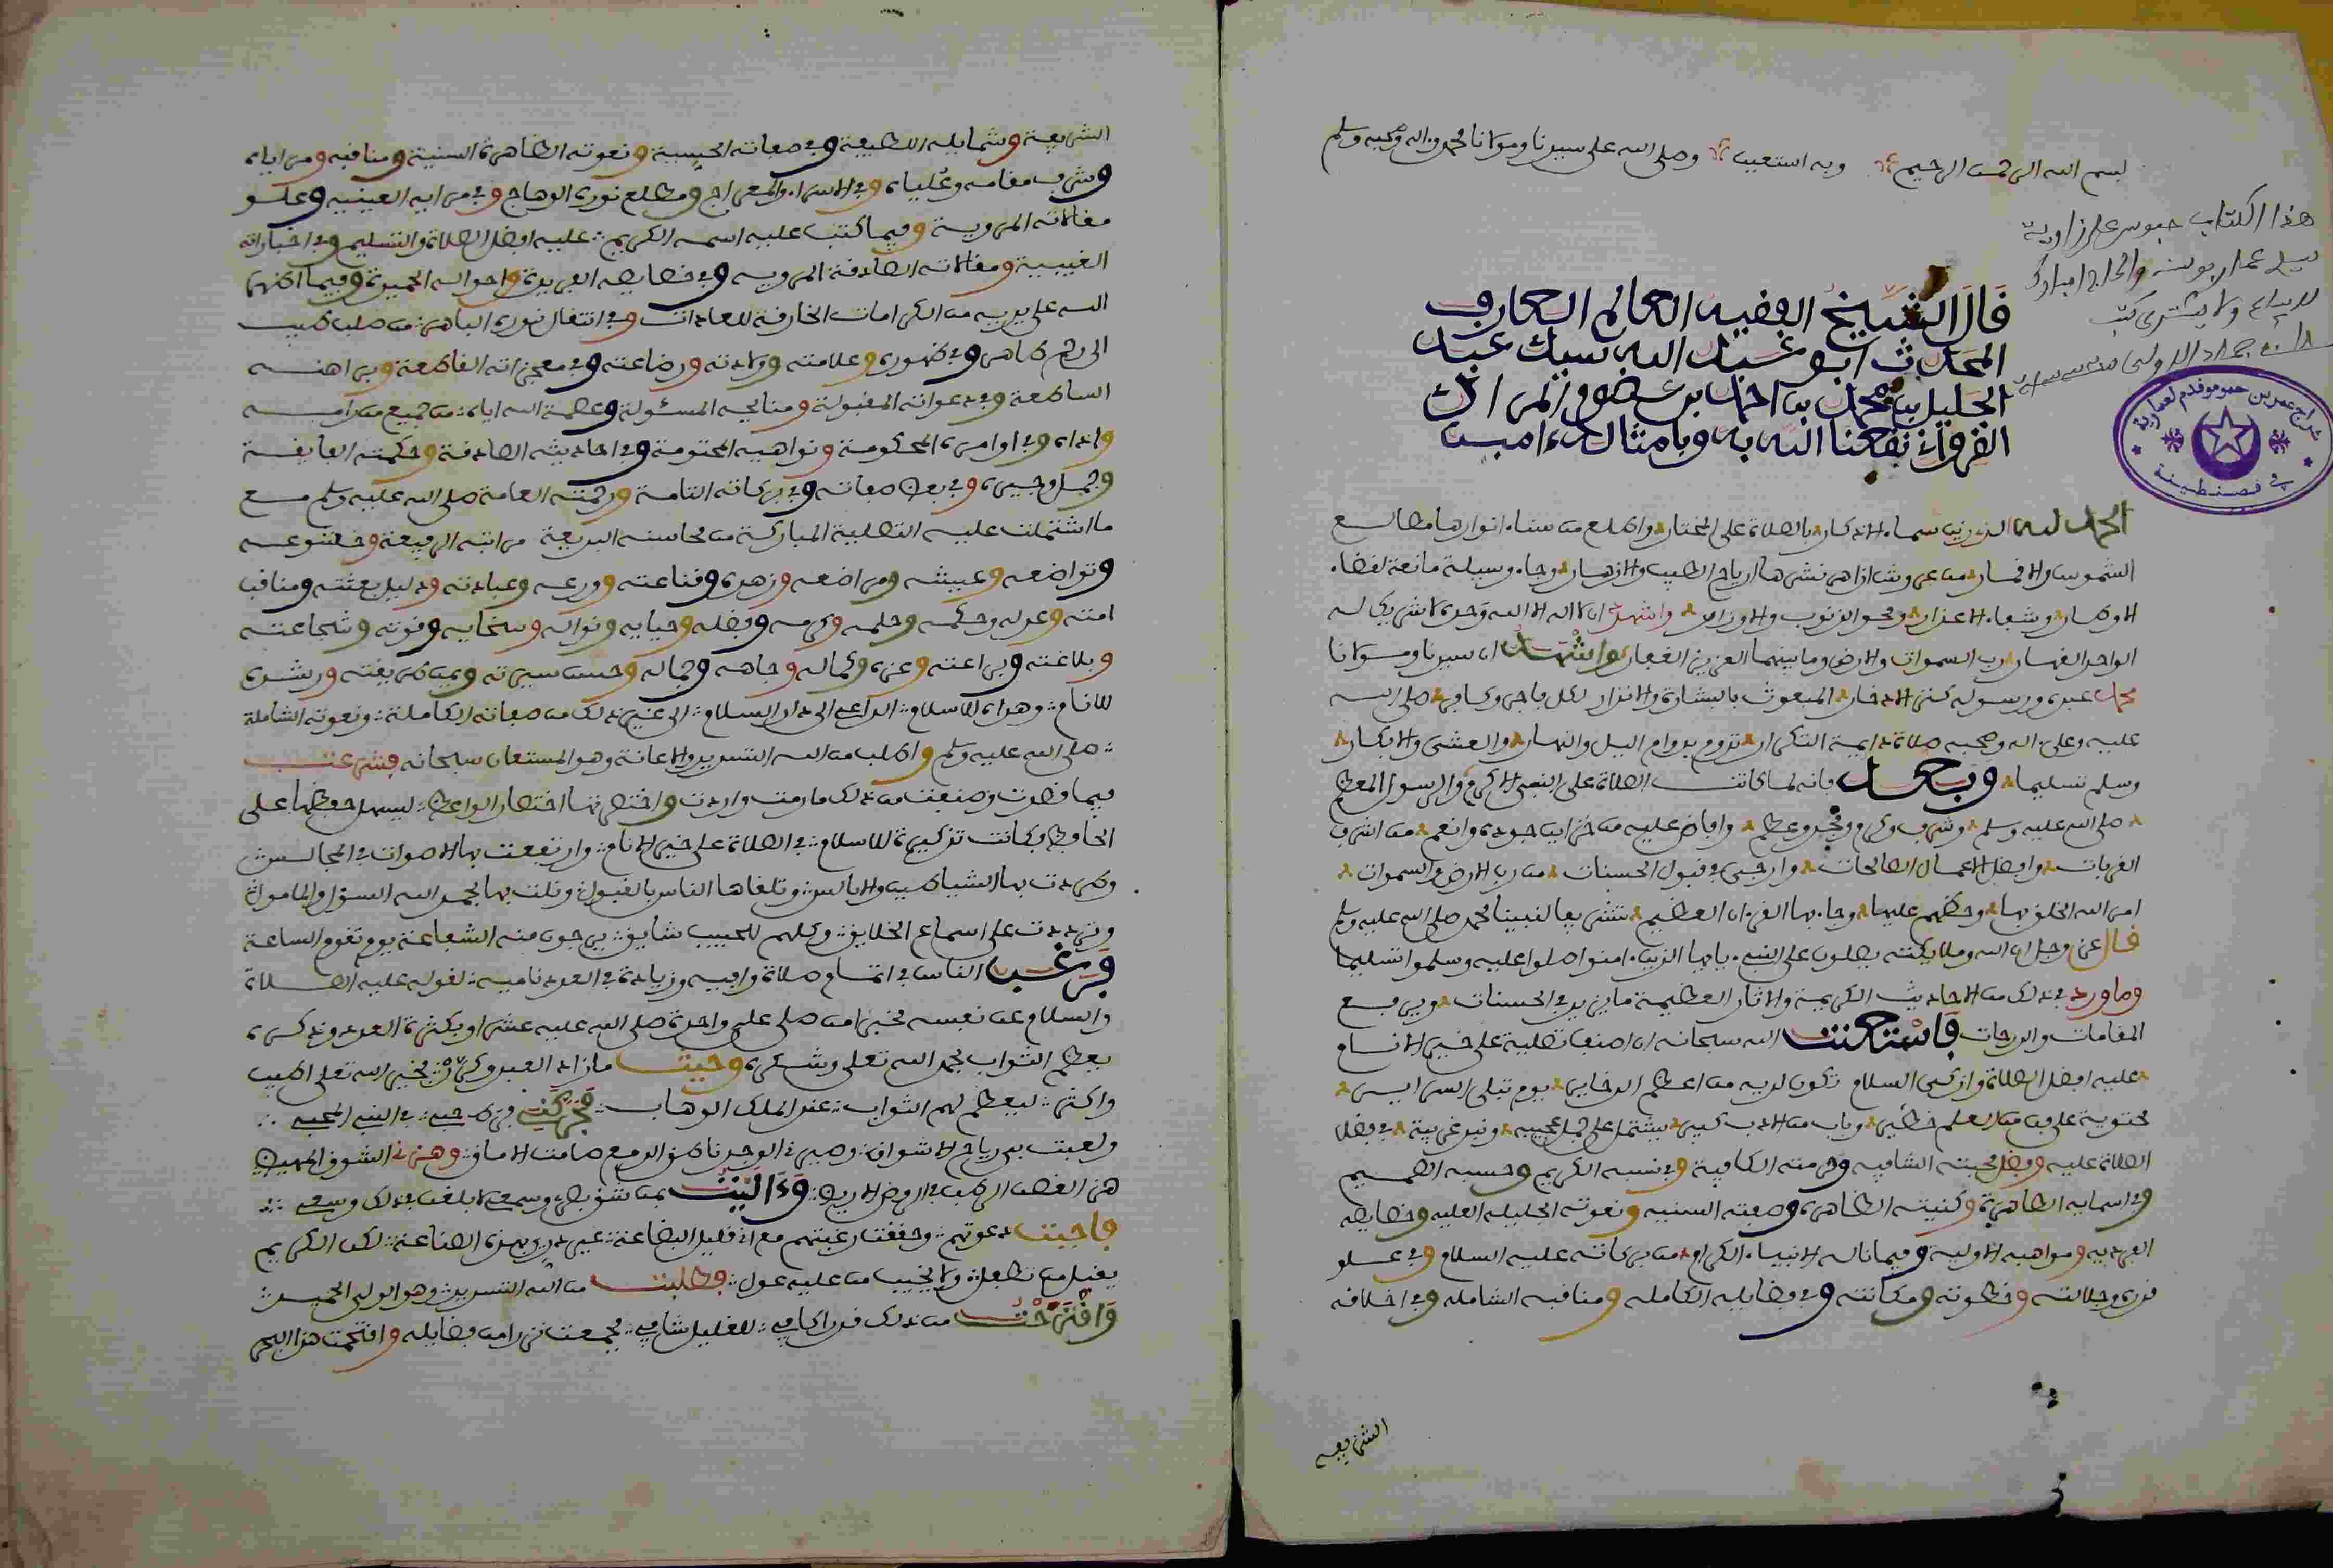 بسم الله الرحمن الرحيم وبه استعين وصلى الله على سيدنا ومولانا محمد وءاله وصحبه وسلم
هذا الكتاب حبوس على زاوية
سيد عمار بوسنة والحاج امبارك
لا يباع ولا يشترى
قال الشيخ الفقيه العالم العارف
المحدث ابو عبد الله سيدي عبد
الجليل بن محمد بن احمد بن عضوم المرادي
القروي نفعنا الله به وبامثاله ءامين
شراح عمر بن حمو موقدم لعمارية
في قصنطينة
الحمد لله الذي زين سماء الاذكار بالصلاة على المختار واطلع من سناء انوارها مطالع
الشموس والاقمار من عروش ازاهر نشرها ارياح الطيب والازهار وجاء وسيلة مانعة لقضاء
الاوطار وشفاء الاعذار ومحو الذنوب والاوزار واشهد ان لا اله الا الله وحده لا شريك له
الواحد القهار رب السموات والارض وما بينهما العزيز الغفار واشهد ان سيدنا ومولانا
محمد عبده ورسوله كنز الادخار المبعوث بالبشارة والانذار لكل فاجر وكافر صلى الله
عليه وعلى ءاله وصحبه صلاة دايمة التكرار تدوم بدوام اليل والنهار والعشي والابكار
وسلم تسليما وبعد فانه لما كانت الصلاة على النبي الاكرم والرسول المعظم
صلى الله عليه وسلم وشرف وكرم ومجد وعظم وافاض عليه من خزاين جوده وانعم من اشرف
القربات وافضل الاعمال الصالحات وارجى في قبول الحسنات من رب الارض والسموات
امر الله الخلق بها وحظهم عليها وجاء بها القرءان العظيم تشريفا لنبينا محمد صلى الله عليه وسلم
فال عز وجل ان الله وملايكته يصلون على النبيء يايها الذين ءامنوا صلوا عليه وسلموا تسليما
وما ورد في ذلك من الاحاديث الكريمة والاثار العظيمة ما يزيد في الحسنات ويرفع
المقامات والدرجات فاستعنت الله سبحانه ان اصنف تصلية على خير الانام
عليه افضل الصلاة وازكى السلام تكون لديه من اعظم الدخاير يوم تبلى السراير
محتوية على فن من العلم خطير وباب من الادب كبير يشتمل على جمل عجيبه ونبذ غريبة في فضل
الصلاة عليه وفضل محبته الشافيه وحرمته الكافية وفي نسبه الكريم وحسبه الصميم
وفي اسمايه الطاهرة وكنيته الظاهرة وصفته السنيه ونعوته الجليله العليه وخصايصه
الفردية ومواهبه الاولية وفيما ناله الانبياء الكرام من بركاته عليه السلام وفي علو
قدره وجلالته وخطوته ومكانته وفي فضايله الكامله ومناقبه الشامله وفي اخلاقه
الشريفه
الشريفة وشمايله اللطيفة وفي صفاته الحسية ونعوته الظاهرة السنية ومناقبه ومزاياه
وشرف مقامه وعلياه وفي الاسراء والمعراج ومطلع نوره الوهاج وفي مراييه العينيه وعلو
مقالاته المروية وفيما كتب عليه اسمه الكريم عليه افضل الصلاة والتسليم وفي اخباراته
الغيبية ومقالاته الصادقة المرويه وفي خصايصه الفريدة واحواله الحميدة وفيما اظهر
الله على يديه من الكرامات الخارقة للعادات وفي انتقال نوره الباهر من صلب طيب
الى رحم طاهر وفي ظهوره وعلامته وولادته ورضاعته وفي معجزاته القاطعة وبراهنه
الساطعة وفي دعواته المقبولة ومنايحه المسئولة وعصمة الله اياه من جميع من رامه
واذاه وفي اوامره المحكومة ونواهيه المحتومة وفي احاديثه الصادقة وحكمته الفايقة
وجمل وجيزه وفي بعض صفاته وفي بركاته التامة ورحمته العامة صلى الله عليه وسلم مع
ما اشتملت عليه التصلية المباركة من محاسنه البديعة مراتبه الرفيعة وخشوعه
وتواضعه وعيشه ومراضعه وزهده وقناعته وورعه وعبادته ودليل بعثته ومناقب
امته وعدله وحكمه وحلمه وكرمه وفضله وحيايه ونواله وسخايه وقوته وشجاعته
وبلاغته وبراعته وعزه وكماله وجاهه وجماله وحسن سيرته ويمن طريقته ورشده
للانام وهداه للاسلام الداعي الى دار السلام الى غير ذلك من صفاته الكاملة ونعوته الشاملة
صلى الله عليه وسلم واطلب من الله التسديد والاعانة وهو المستعان سبحانه فشرعت
فيما قصدت وصنفت من ذلك ما رمت واردت واختصرتها اختصار الواعظ ليسهل حفظها على
الحافظ فكانت تذكيرة للاسلام في الصلاة على خير الانام وارتفعت بها الاصوات في المجالس
وطردت بها الشياطين والابالس وتلقاها الناس بالقبول ونلت بها بحمد الله السؤل والمامول
وترددت على اسماع الخلايق وكلهم للحبيب شايق يرجون منه الشفاعة يوم تقوم الساعة
فرغب الناس في اتمام صلاة وافيه وزيادة في العدد ناميه لقوله عليه الصلاة
والسلام عن نفسه مخبرا من صلى علي واحدة صلى الله عليه عشرا وبكثرة العدد وذكره
يعظم الثواب بحمد الله تعلى وشكره وحيث ما زاد العبد وكرر بخير الله تعلى اطيب
واكثر ليعظم لهم الثواب عند الملك الوهاب فحركني في طربي في النبي المحبي
ولعبت بي رياح الاشواق وصيرني الوجد ناطق الدمع صامت الاماق وهزني الشوق اليه
هز الغصن الرطب في الروض الاريض وذاليت بمن شوقي وسمعي لا بلغت في ذلك وسعي
فاجبت دعوتهم وحققت رغبتهم مع اني قليل البضاعة غير دري بهذه الصناعة لكن الكريم
يقبل من تطفل ولا يخيب من عليه عول فطلبت من الله التسديد وهو الولي الحميد
وافترحت من ذلك قدرا كافي للغليل شافي فجمعت نزرا من فضايله وافتحمت هذا البحر